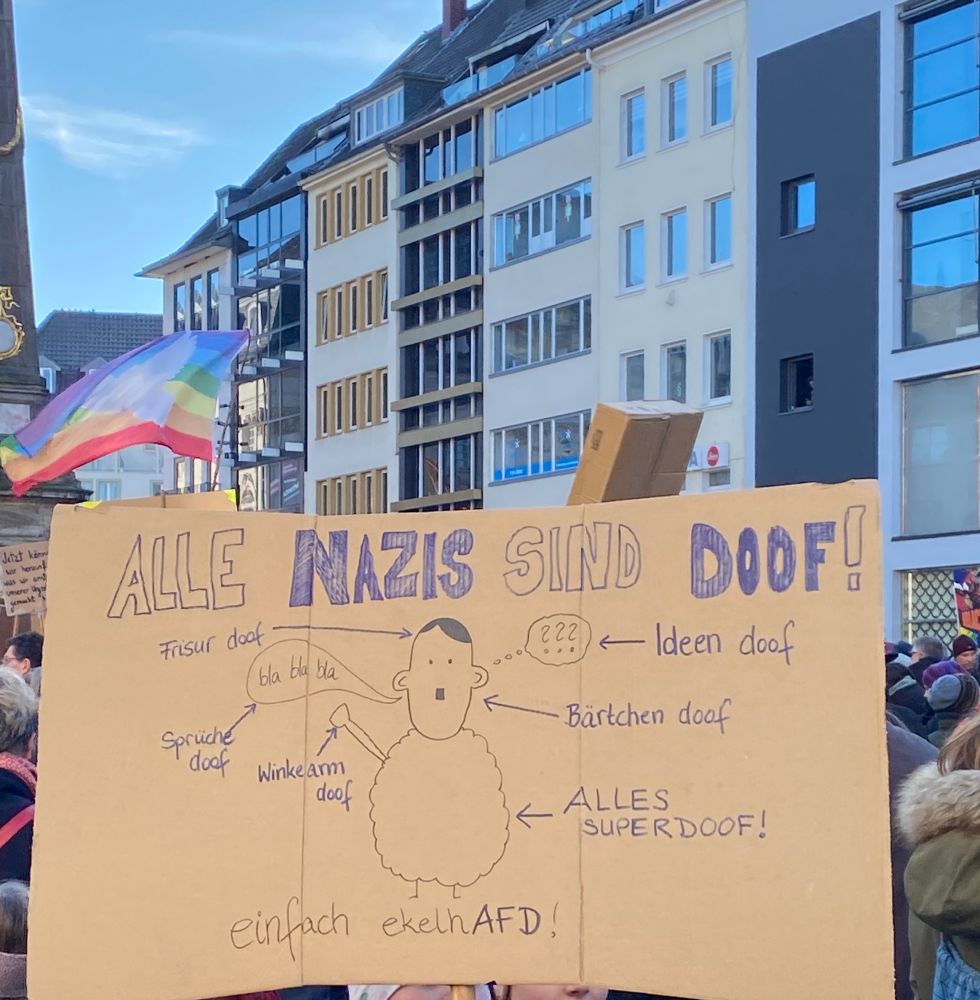 ALLE NAZIS SIND DOOF!
Frisur doof
???
Ideen doof
bla bla bla
Bärtchen doof
Sprüche
doof
Winkearm
doof
ALLES
SUPERDOOF!
einfach ekelhAFD!
Jetzt